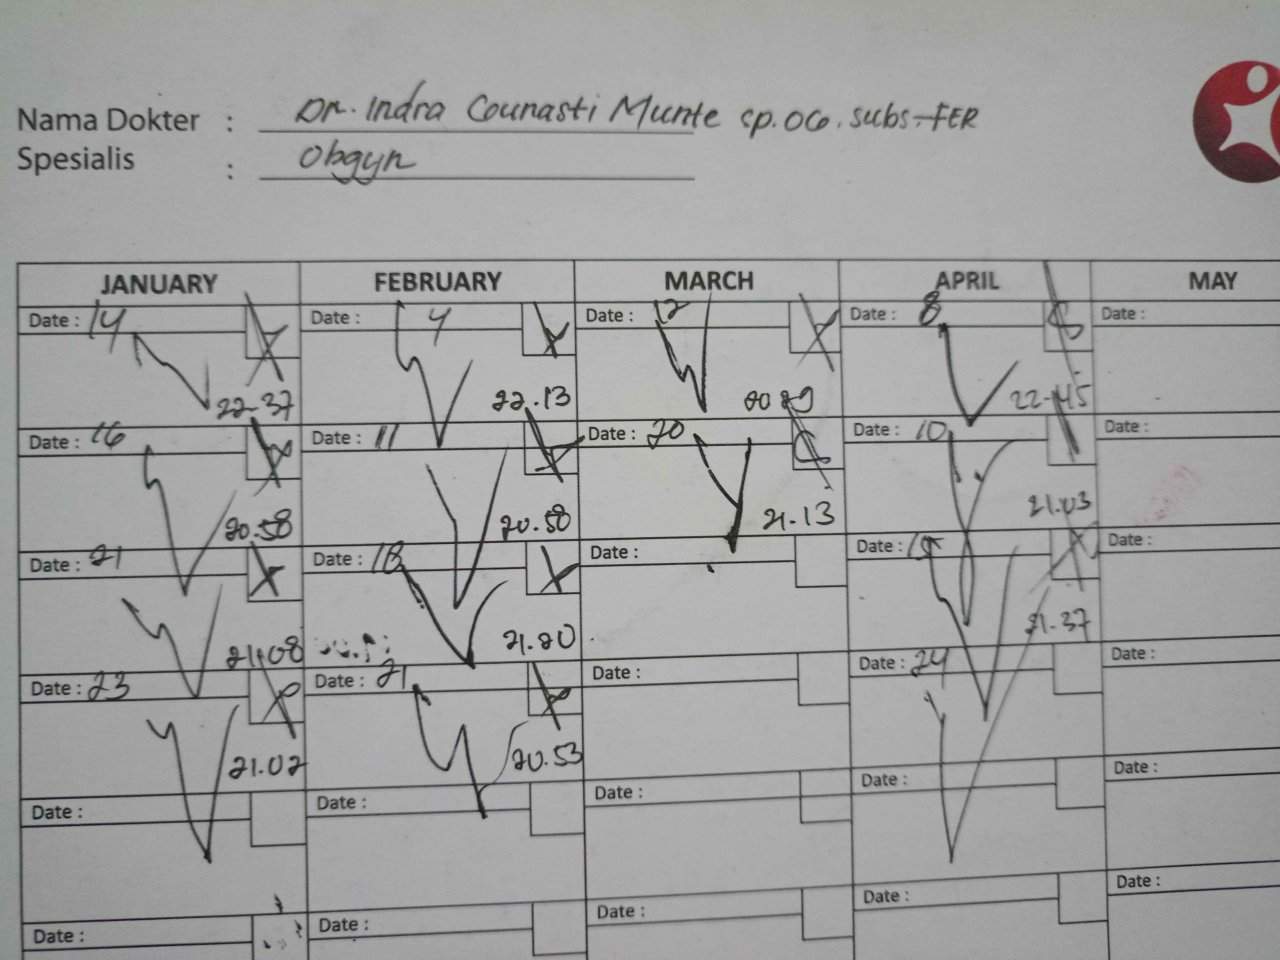 Nama Dokter : Dr. Indra Counasti Munte sp.OG. subs-FER
Spesialis : Obgyn
JANUARY FEBRUARY MARCH APRIL MAY
Date : 14 Date : 4 Date : 12 Date : 8 Date :
22-37 22.13 22-45
Date : 16 Date : 11 Date : 20 Date : 10 Date :
20.58 20.50 21.13 21.03
Date : 21 Date : 18 Date : Date : 15 Date :
21.08 21.20 21.37
Date : 23 Date : 21 Date : Date : 24 Date :
21.02 20.53
Date : Date : Date : Date : Date :
Date : Date : Date : Date : Date :